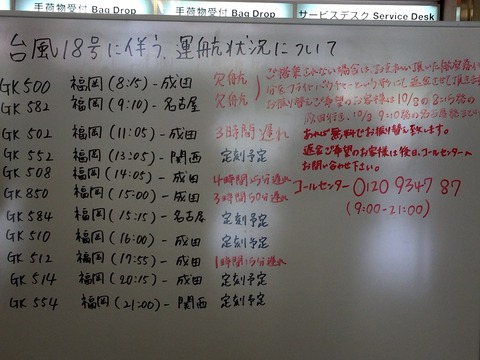 手荷物受付 Bag Drop
手荷物受付 Bag Drop
サービスデスク Service Desk
台風18号に伴う運航状況について
GK500 福岡(8:15)-成田 欠航
GK582 福岡(9:10)-名古屋 欠航
GK502 福岡(11:05)-成田 3時間遅れ
GK552 福岡(13:05)-関西 定刻予定
GK508 福岡(14:05)-成田 4時間15分遅れ
GK850 福岡(15:00)-成田 3時間50分遅れ
GK584 福岡(15:15)-名古屋 定刻予定
GK510 福岡(16:00)-成田 定刻予定
GK512 福岡(17:55)-成田 1時間15分遅れ
GK514 福岡(20:15)-成田 定刻予定
GK554 福岡(21:00)-関西 定刻予定
ご搭乗されない場合は、お支払い頂いた
お振り替えご希望のお客様は10/8の8:15
成田行き、10/8 9:10 名古屋
あれば無料でお振り替え致します。
返金ご希望のお客様は後日、コールセンターへ
お問い合わせ下さい。
コールセンター 0120 9347 87
(9:00-21:00)